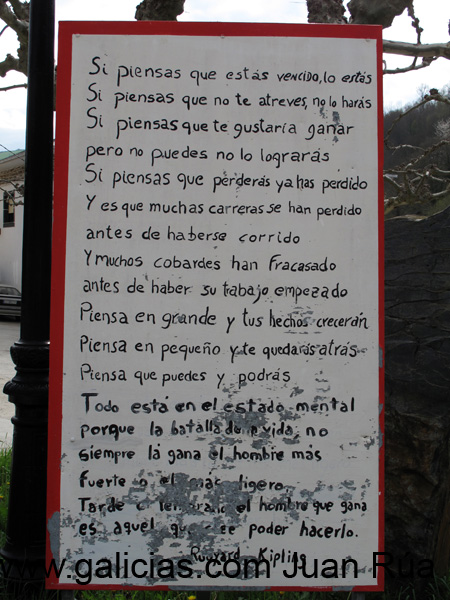 Si piensas que estás vencido, lo estás
Si piensas que no te atreves, no lo harás
Si piensas que te gustaría ganar
pero no puedes no lo lograrás
Si piensas que perderás ya has perdido
Y es que muchas carreras se han perdido
antes de haberse corrido
Y muchos cobardes han Fracasado
antes de haber su trabajo empezado
Piensa en grande y tus hechos crecerán
Piensa en pequeño y te quedarás atrás
Piensa que puedes y podrás
Todo está en el estado mental
porque la batalla de la vida, no
siempre la gana el hombre más
fuerte o el más ligero
Tarde o temprano el hombre que gana
es aquel que cree poder hacerlo.
Kipling
www.galicias.com Juan Rúa